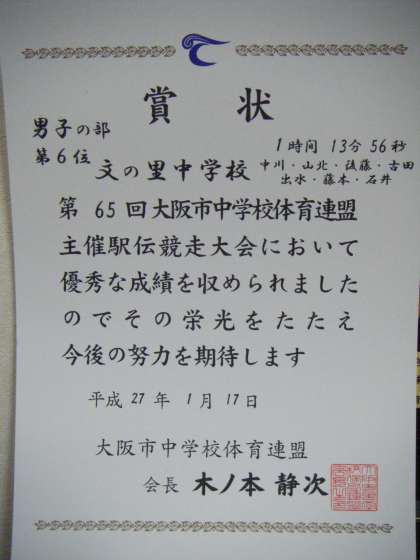 賞状
男子の部
第6位
1時間 13分 56秒
文の里中学校
中川・山北・後藤・古田
出水・藤本・石井
第 65 回大阪市中学校体育連盟
主催駅伝競走大会において
優秀な成績を収められました
のでその栄光をたたえ
今後の努力を期待します
平成 27 年 1 月 17 日
大阪市中学校体育連盟
会長 木ノ本 静次